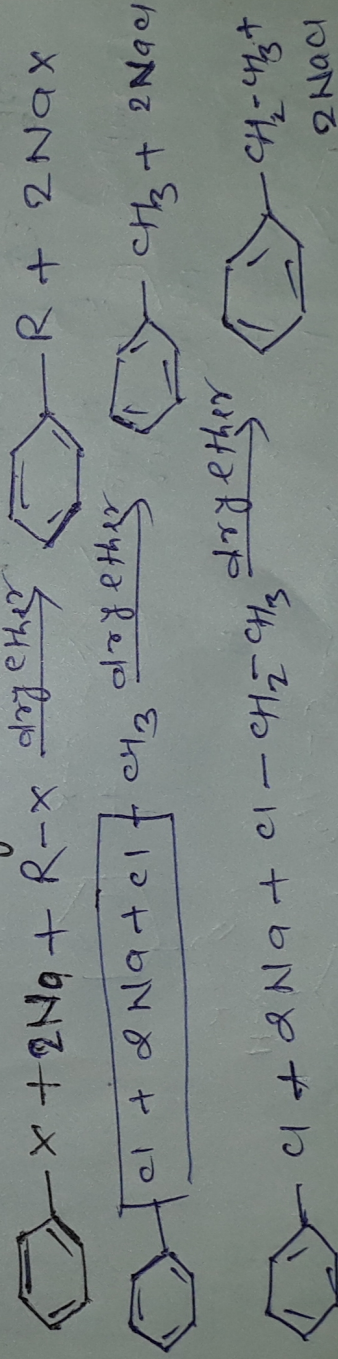 X + 2Na + R-X dry ether R + 2Nax
Cl + 2Na + Cl CH3 dry ether CH3 + 2NaCl
Cl + 2Na + Cl-CH2-CH3 dry ether CH2-CH3 +
2NaCl